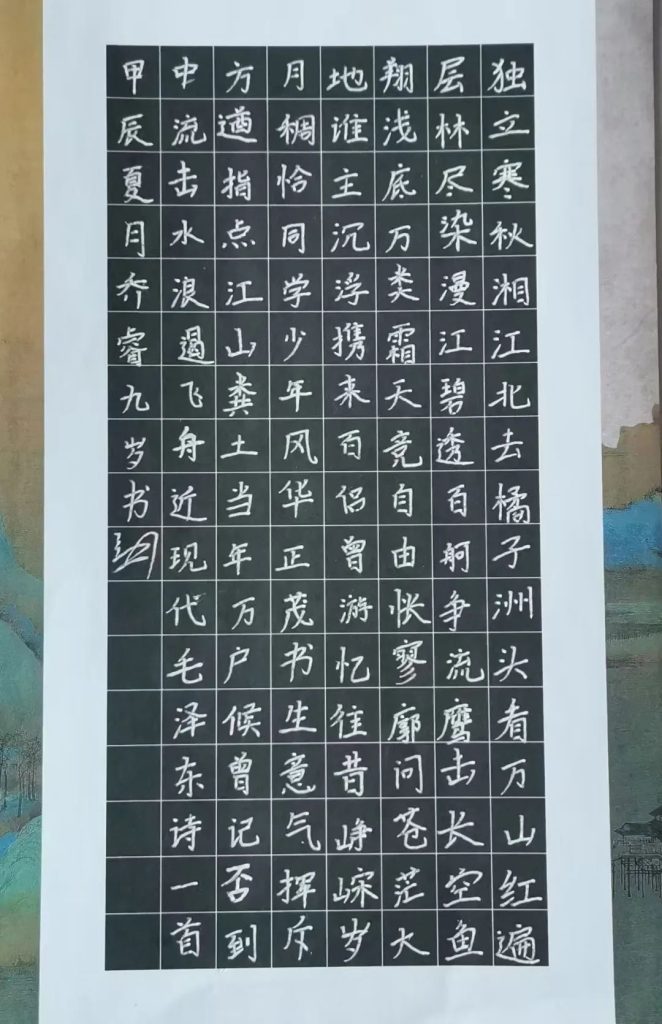 独立寒秋湘江北去橘子洲头看万山红遍
层林尽染漫江碧透百舸争流鹰击长空鱼
翔浅底万类霜天竞自由怅寥廓问苍茫大
地谁主沉浮携来百侣曾游忆往昔峥嵘岁
月稠恰同学少年风华正茂书生意气挥斥
方遒指点江山粪土当年万户候曾记否到
中流击水浪遏飞舟近现代毛泽东诗一首
甲辰夏月乔睿九岁书